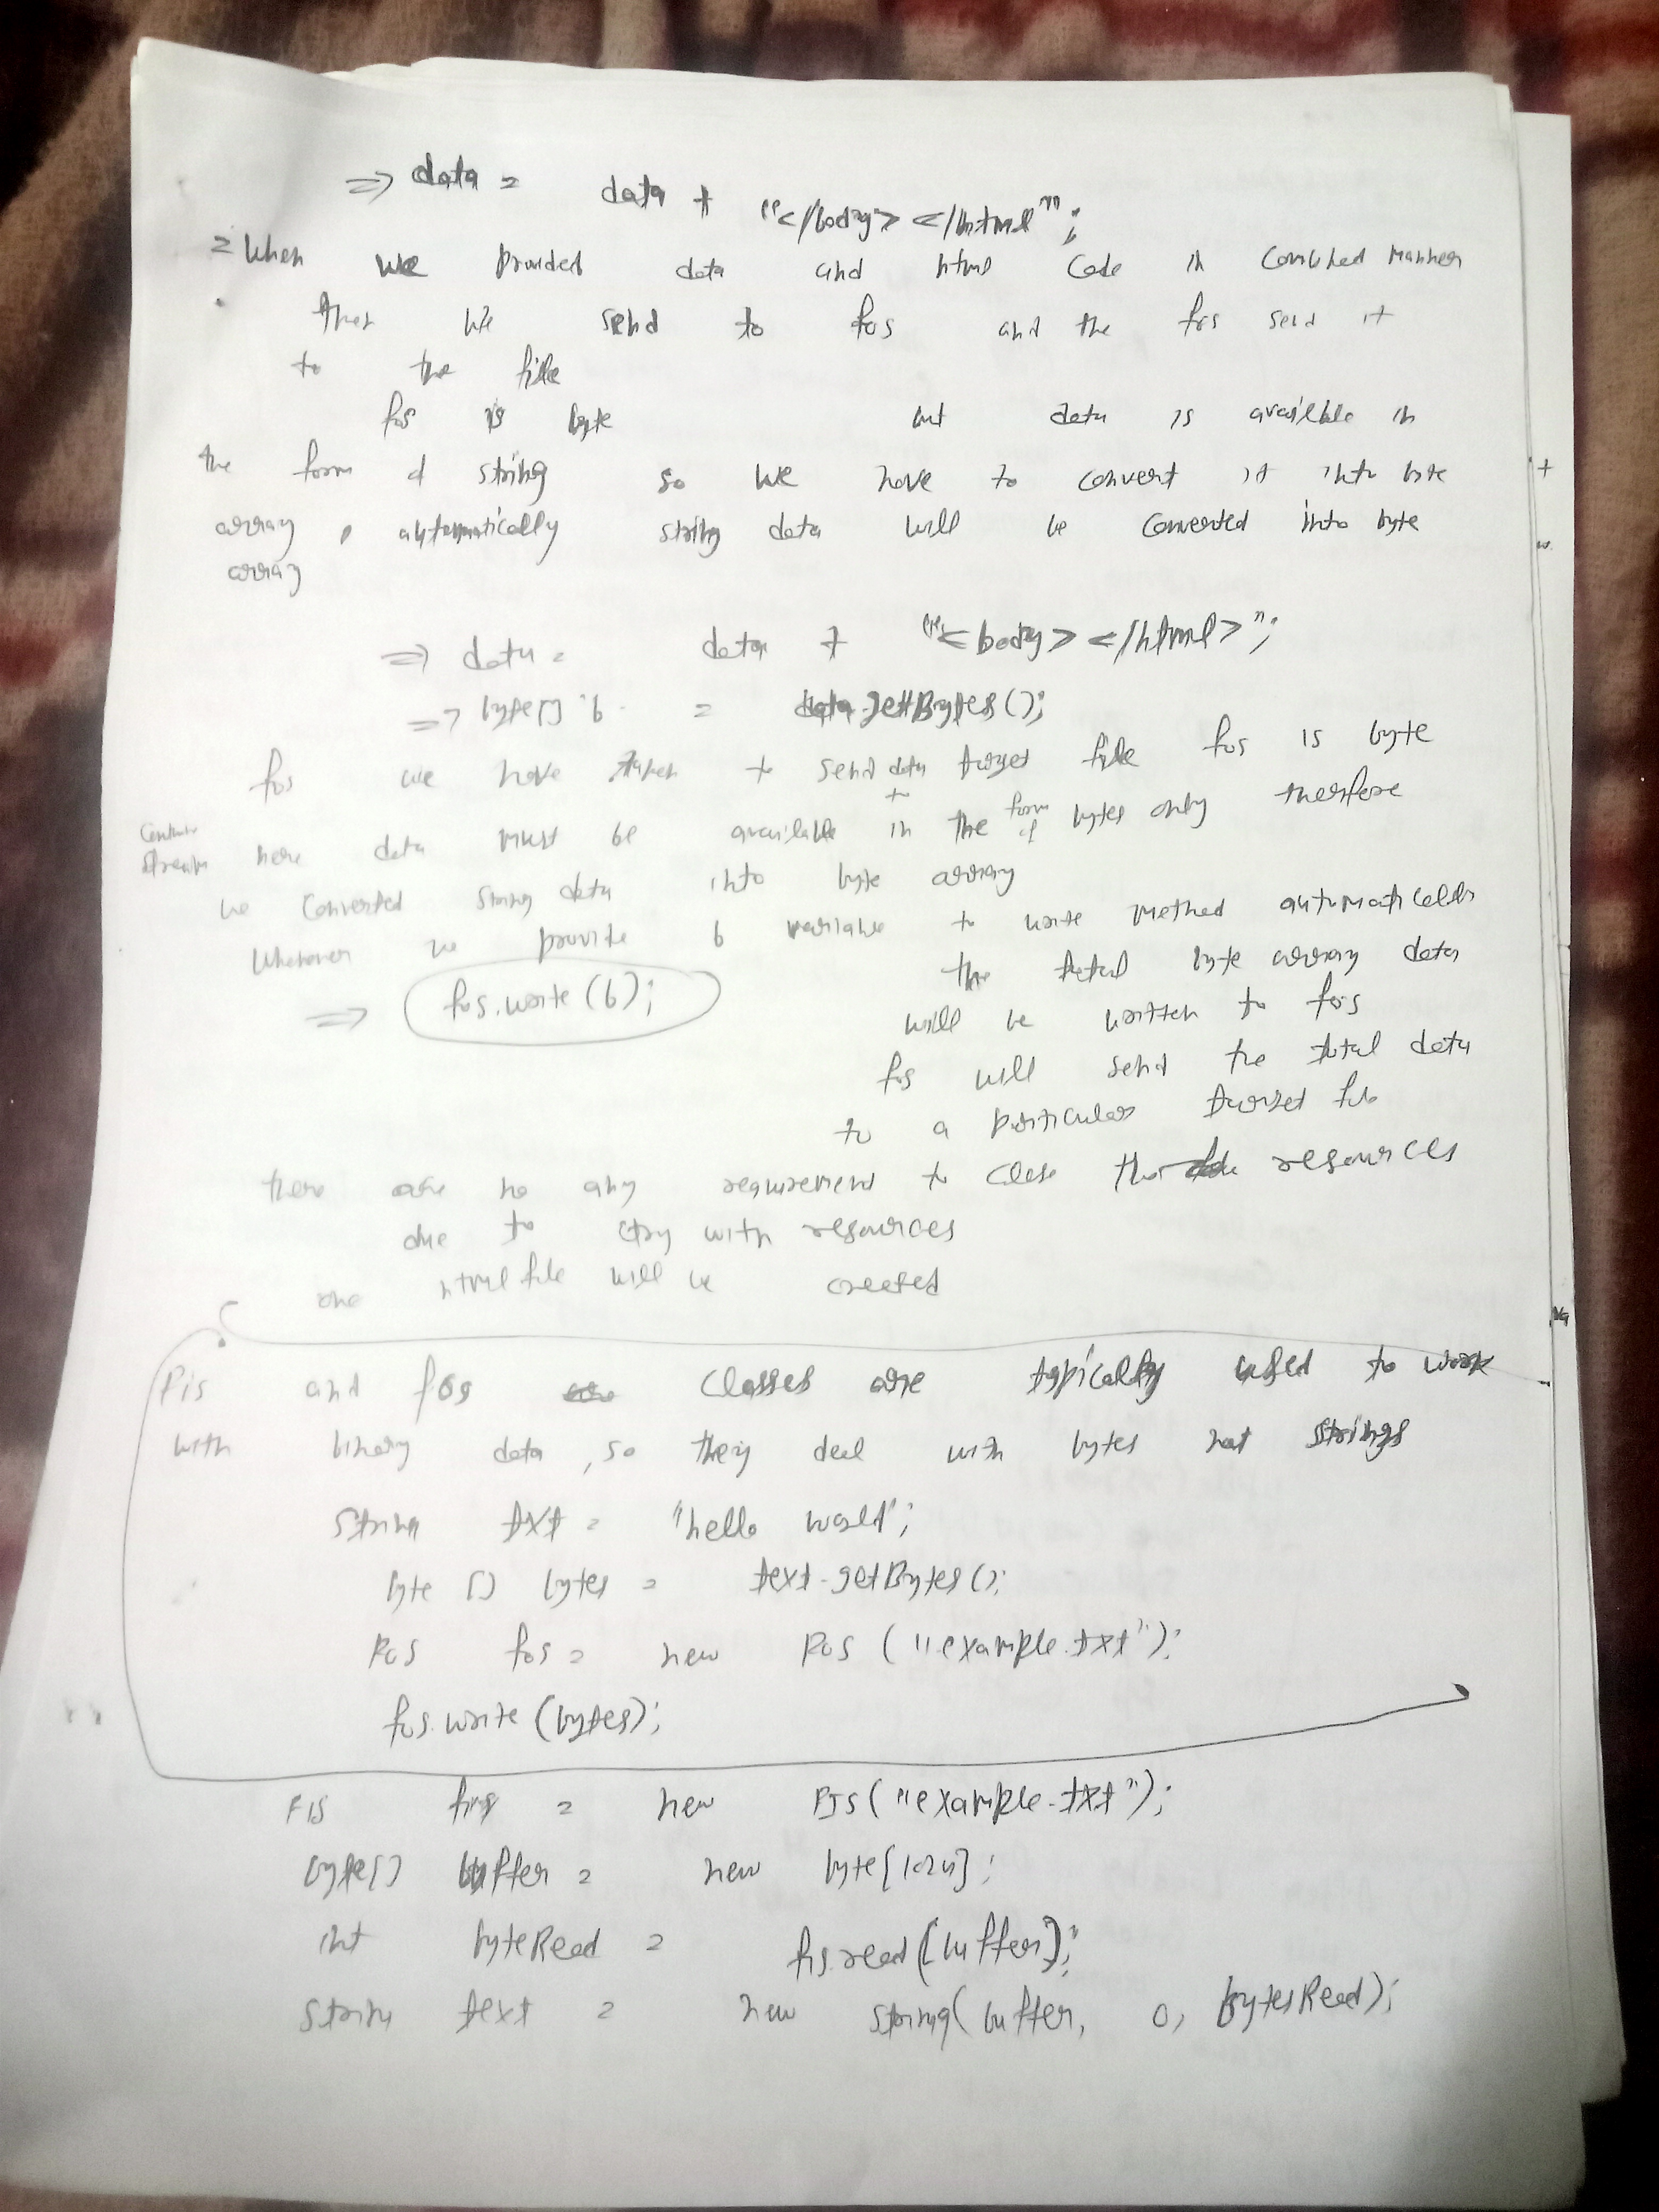 ⇒ data = data + "</body></html";
= When we provided data and html code in combined manner
then we send to fos and the fos send it
to the file
fos is byte but data is available in
the form of string so we have to convert it into byte
array, automatically string data will be converted into byte
array
⇒ data = data + "<body></html>";
⇒ byte[] b = data.getBytes();
fos we have taken to send data to target file fos is byte
stream here data must be available in the form of bytes only therefore
we converted string data into byte array
Whenever we provide b variable to write method automatically
the total byte array data
⇒ fos.write(b);
will be written to fos
fos will send the total data
to a particular target file
there are no any requirement to close the resources
due to try with resources
one html file will be created
Fis and fos classes are typically used to work
with binary data, so they deal with bytes not strings
String txt = "hello world";
byte [] bytes = text.getBytes();
Fos fos = new Fos ("example.txt");
fos.write (bytes);
FIS fis = new FIS("example.txt");
byte[] buffer = new byte[1024];
int byteRead = fis.read(buffer);
String text = new string(buffer, 0, bytesRead);